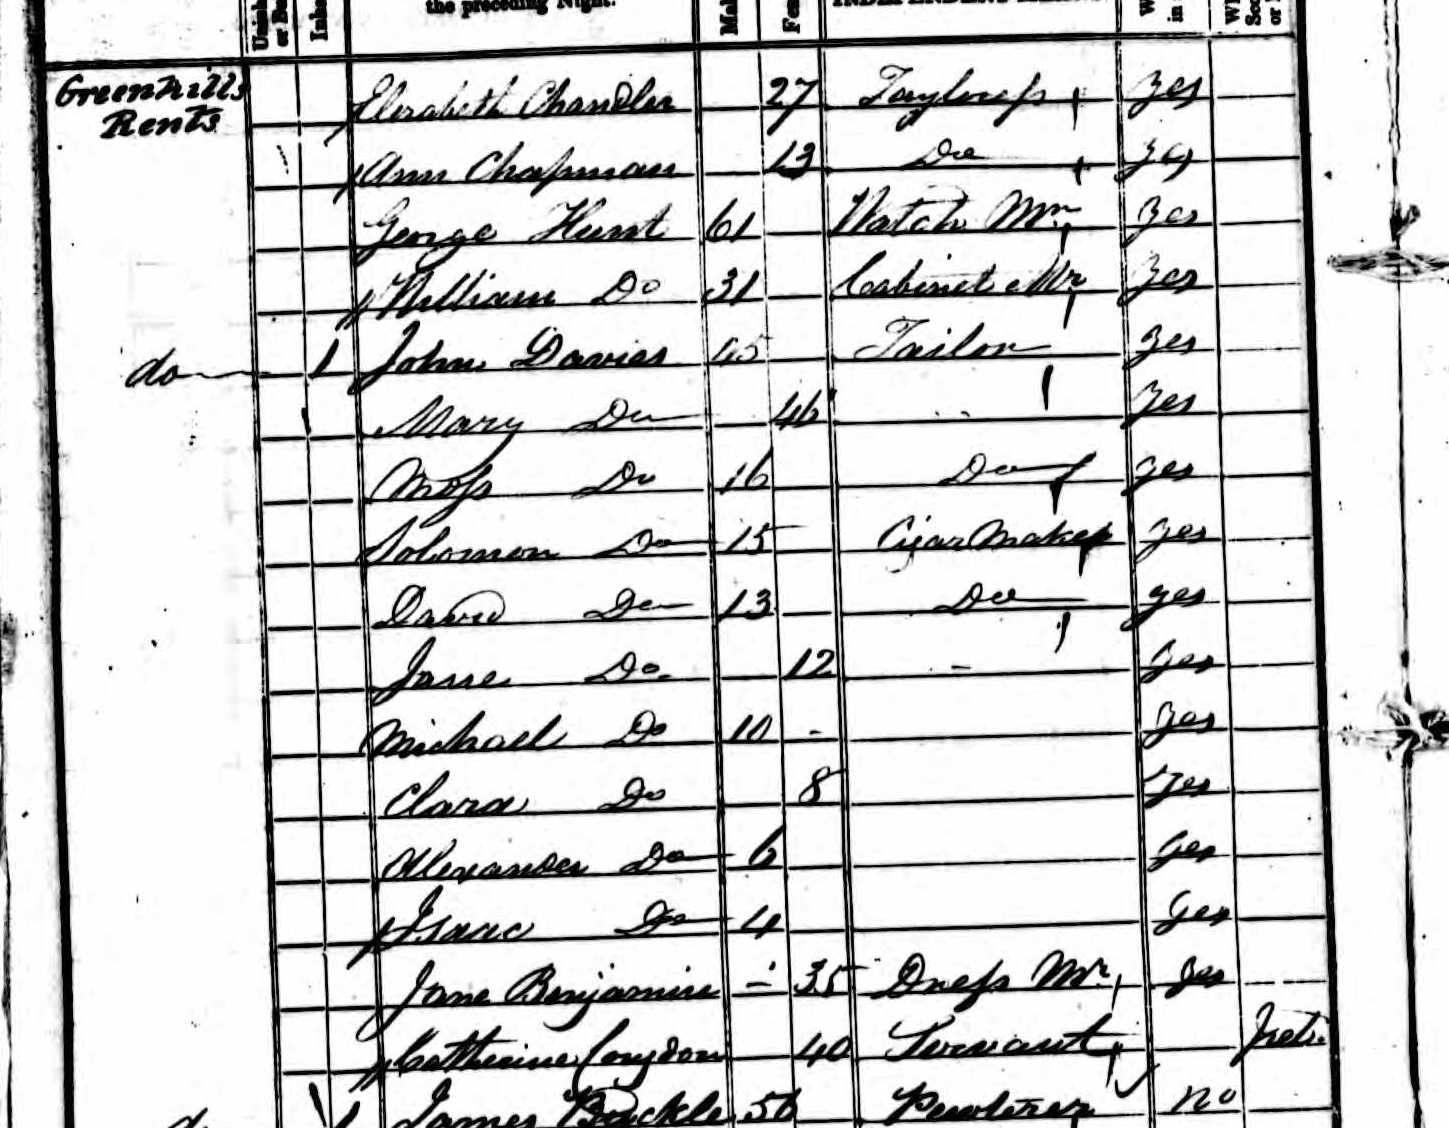 the preceding Night.
Greenhills Rents Elizabeth Chandler 27 Tayloress yes
Ann Chapman 13 Do yes
George Hunt 61 Watch Mr yes
William Do 31 Cabinet Mr yes
do 1 John Davies 45 Tailor yes
Mary Do 46 yes
Moss Do 16 Do yes
Solomon Do 15 Cigar Maker yes
David Do 13 Do yes
Jane Do 12 - yes
Michael Do 10 - yes
Clara Do 8 yes
Alexander Do 6 yes
Isaac Do 4 yes
Jane Benjamin - 35 Dress Mr yes
Catherine 40 Servant
1 James Buckle 56 Pewterer no